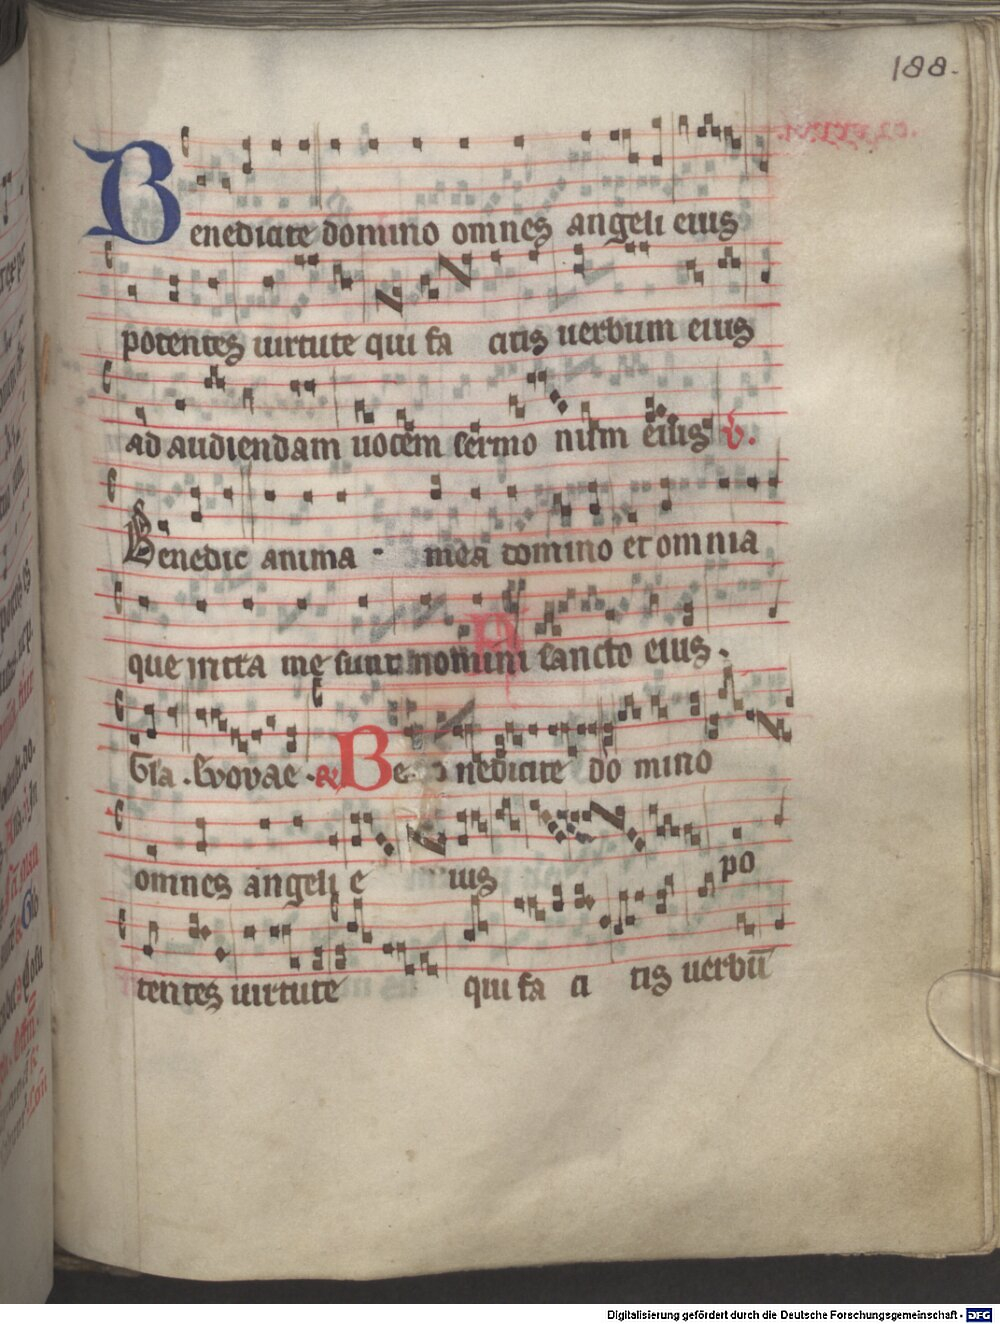 188.
Benedicite domino omnes angeli eius
potentes uirtute qui fa citis uerbum eius
ad audiendam uocem sermo num eius V.
Benedic anima mea domino et omnia
que intra me sunt nomini sancto eius.
Gla. Evovae. Be nedicite do mino
omnes angeli e ius po
tentes uirtute qui fa ci tis uerbū
Digitalisierung gefördert durch die Deutsche Forschungsgemeinschaft - DFG